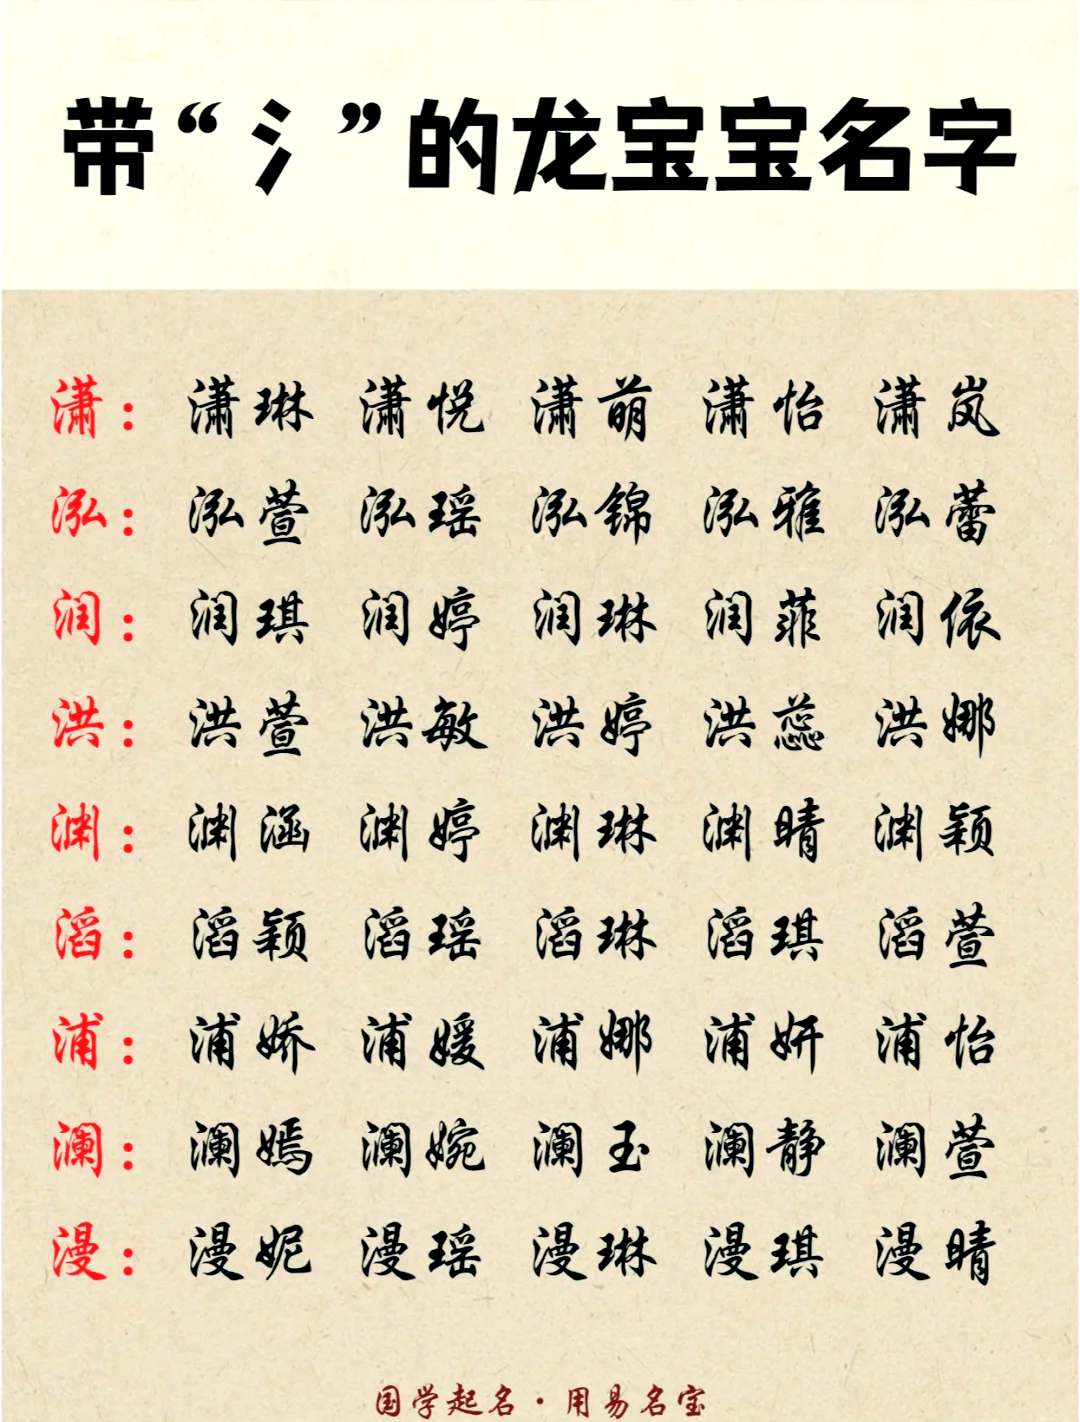 带“氵”的龙宝宝名字
潇： 潇琳 潇悦 潇萌 潇怡 潇岚
泓： 泓萱 泓瑶 泓锦 泓雅 泓蕾
润： 润琪 润婷 润琳 润菲 润依
洪： 洪萱 洪敏 洪婷 洪蕊 洪娜
渊： 渊涵 渊婷 渊琳 渊晴 渊颖
滔： 滔颖 滔瑶 滔琳 滔琪 滔萱
浦： 浦娇 浦媛 浦娜 浦妍 浦怡
澜： 澜嫣 澜婉 澜玉 澜静 澜萱
漫： 漫妮 漫瑶 漫琳 漫琪 漫晴
国学起名·用易名宝